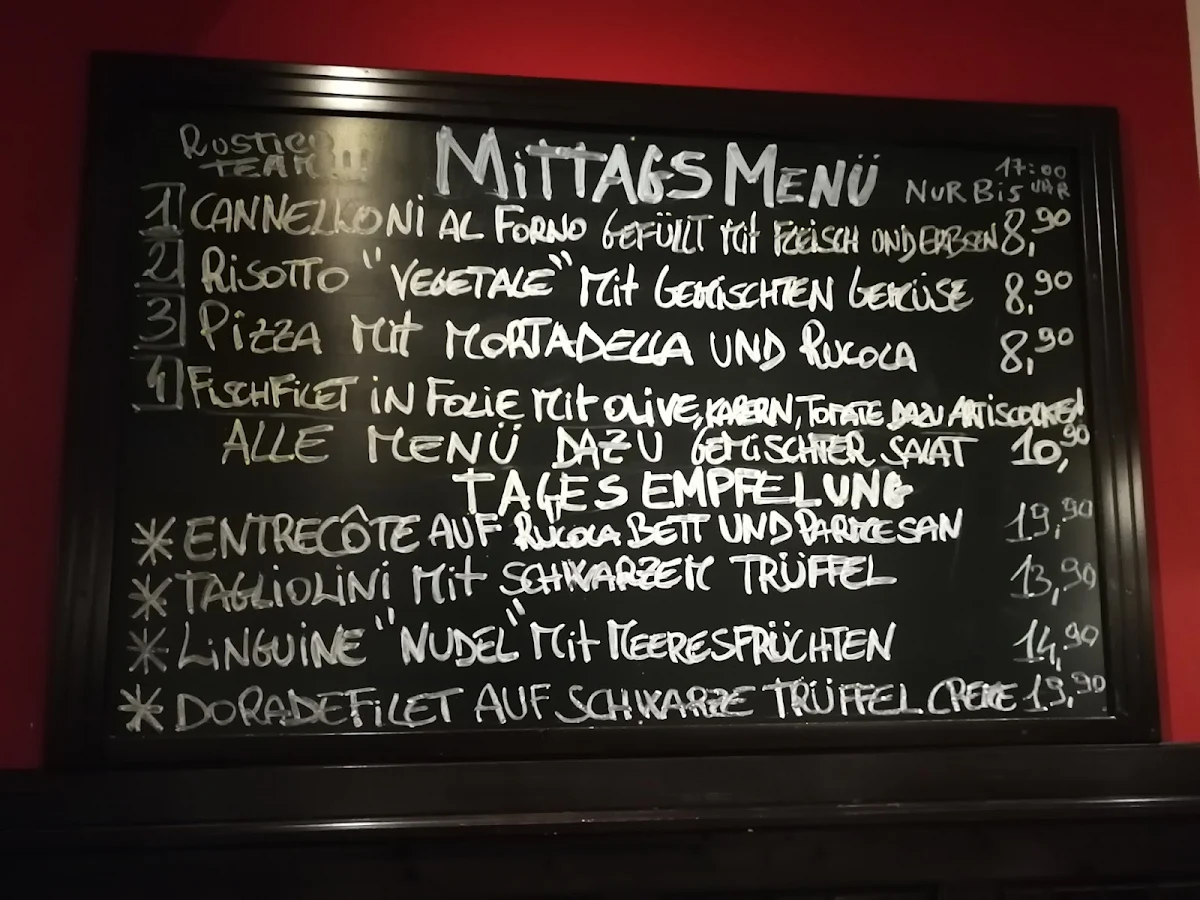 RUSTICO TEAM!!!
MITTAGSMENÜ
NUR BIS 17:00 UHR
1 CANNELLONI AL FORNO GEFÜLLT MIT FLEISCH UND ERBSEN 8,90
2 RISOTTO "VEGETALE" MIT GEMISCHTEN GEMÜSE 8,90
3 PIZZA MIT MORTADELLA UND RUCOLA 8,90
4 FISCHFILET IN FOLIE MIT OLIVE, KAPERN, TOMATE DAZU ARTISCOCKE!
ALLE MENÜ DAZU GEMISCHTER SALAT 10,90
TAGES EMPFELUNG
* ENTRECÔTE AUF RUCOLA BETT UND PARMESAN 19,90
* TAGLIOLINI MIT SCHWARZEM TRÜFFEL 13,90
* LINGUINE "NUDEL" MIT MEERESFRÜCHTEN 14,90
* DORADEFILET AUF SCHWARZE TRÜFFEL CREME 19,90